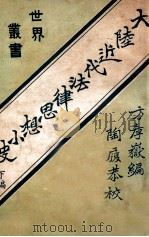 世界
叢書
大陸近代法律思想小史
下編
方孝嶽編
陶履恭校
mtoou.info mtoou.info